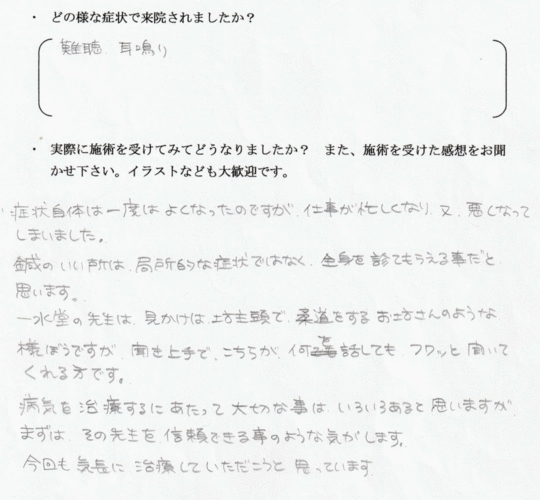 ・ どの様な症状で来院されましたか？
難聴 耳鳴り
・ 実際に施術を受けてみてどうなりましたか？ また、施術を受けた感想をお聞
かせ下さい。イラストなども大歓迎です。
症状自体は一度は よくなったのですが、仕事が忙しくなり 又、悪くなって
しまいました。
鍼のいい所は、局所的な症状ではなく、全身を診てもらえる事だと
思います。
一水堂の先生は、見かけは、坊主頭で、柔道をする お坊さんのような
風ぼうですが、聞き上手で、こちらが、何を話しても、フワッと 聞いて
くれる方です。
病気を治療するにあたって 大切な事は、いろいろあると思いますが、
まずは、その先生を 信頼できる事のような気がします。
今回も 気長に 治療していただこうと 思っています。